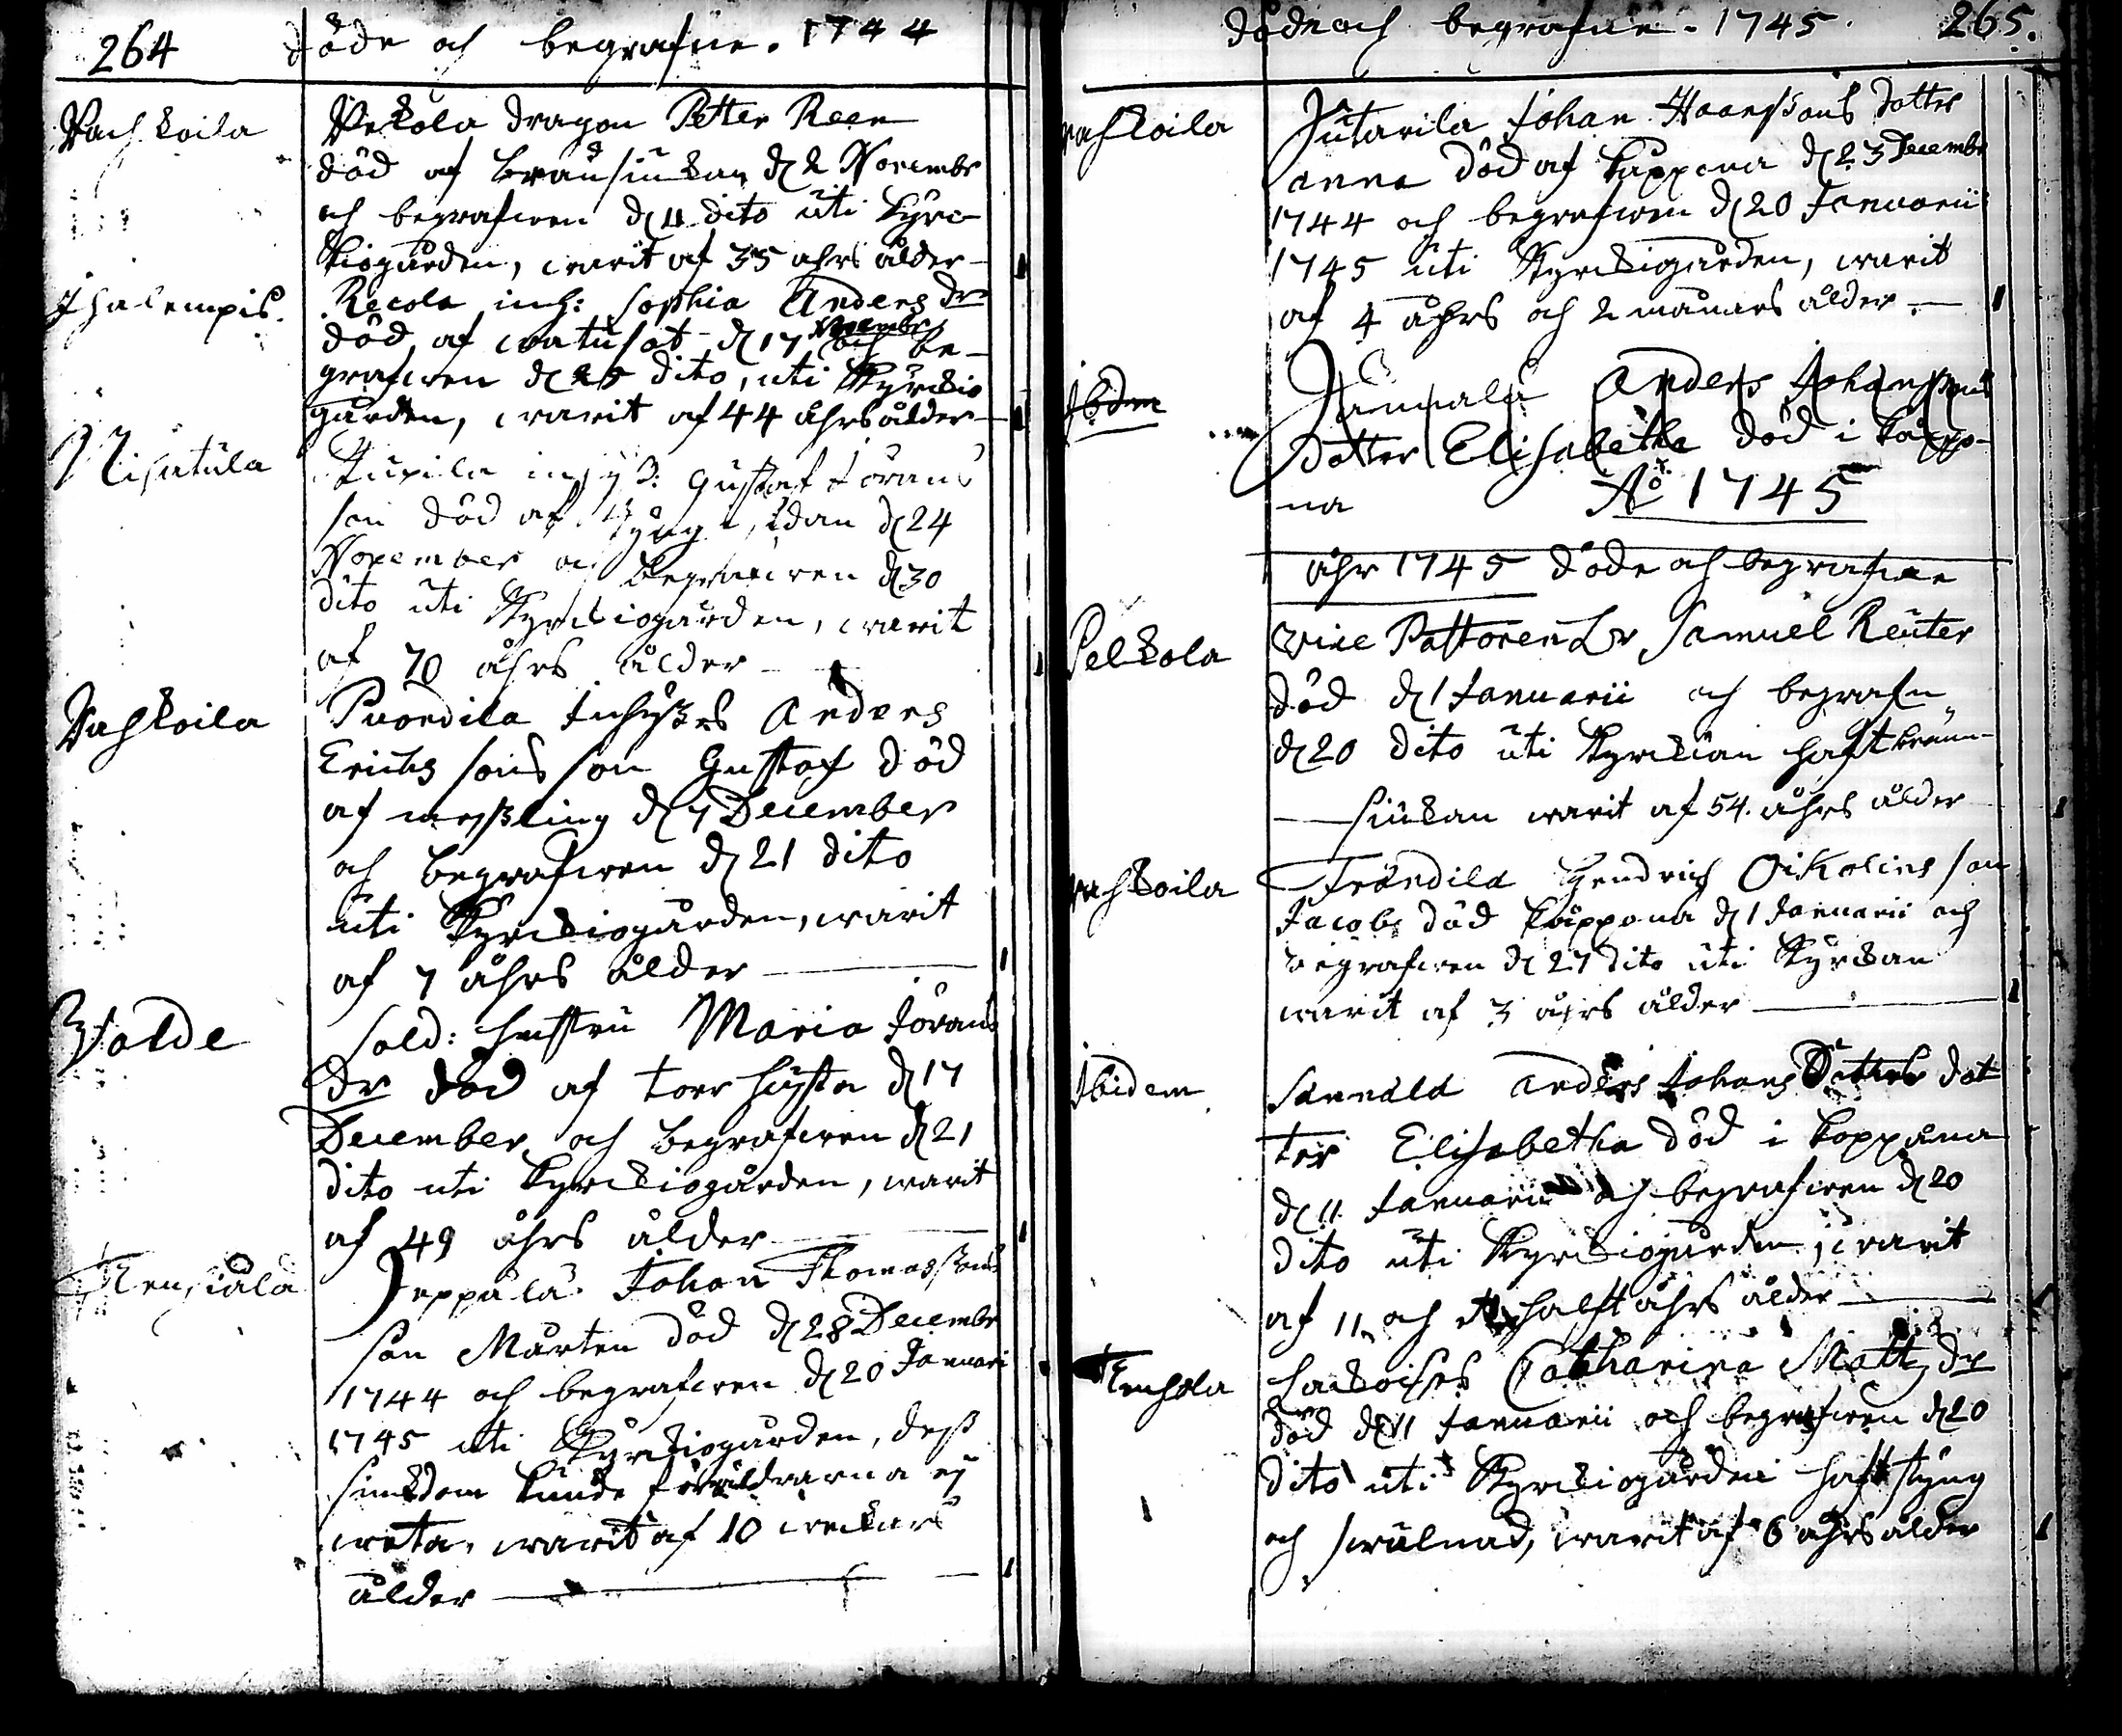 264 döde och begrafne. 1744
Vachkoila Pekola dragon Petter Reen
död af brånsiukan d 2 Novembr
och begrafwen d 11 dito uti kyrc
kiogården, warit af 35 ahrs ålder
Ihalempis. Recola inh: Sophia Anders dr
död af watusot d 17 Novembr och be-
grafwen d 25 dito, uti kyrckio
gården, warit af 44 åhrs ålder
Nisutula inhyß: Gustaf Jörans
son död af d 24
November och begrafwen d 30
dito uti kyrckiogården, warit
af 70 åhrs ålder
Vahkoila Puordila Inhyßes Anders
Erichs sons son Gustaf död
af meßling d 7 December
och begrafwen d 21 dito
uti kyrckiogården, warit
af 7 åhrs ålder
Sold: hustru Maria Jörans
dr död af torr husta d 17
December och begrafwen d 21
dito uti kyrckiogården, warit
af 49 åhrs ålder
Jeppälä Johan Thomassons
son Mårten död d 28 Decembr
1744 och begrafwen d 20 Januari
1745 uti kyrkiogården, deß
siukdom kunde föräldrarna ej
weta, warit af 10 weckurs
ålder
döde och begrafne. 1745 265.
Vahkoila Jutarila Johan Haanssons dotter
Anna död af kåppona d 23 Decembr
1744 och begrafwen d 20 Januarii
1745 uti kyrckiogården, warit
af 4 åhrs och 2 månars ålder
Ibdm Anders Johanssons
dotter Elisabetha död i kåppo-
na Aö 1745
åhr 1745 döde och begrafne
Pelkola Vice Pastoren Hr Samuel Reuter
död d 1 Januarii och begrafn
d 20 dito uti kyrckian haft bränn-
siukan warit af 54. åhrs ålder
Vahkoila Fröndilä Hendrich Oikolins son
Jacob död kåppona d 1 Januarii och
begrafwen d 27 dito uti kyrckan
warit af 3 åhrs ålder
Ibidem Anders Johans dotters dot
ter Elisabetha död i koppona
d 11 Januarii och begrafwen d 20
dito uti kyrckiogården, warit
af 11 och halft åhrs ålder
Catharina Matts dr
död d 11 Januarii och begrafwen d 20
dito uti kyrckiogården haft styng
och swulnad, warit af 6 åhrs ålder